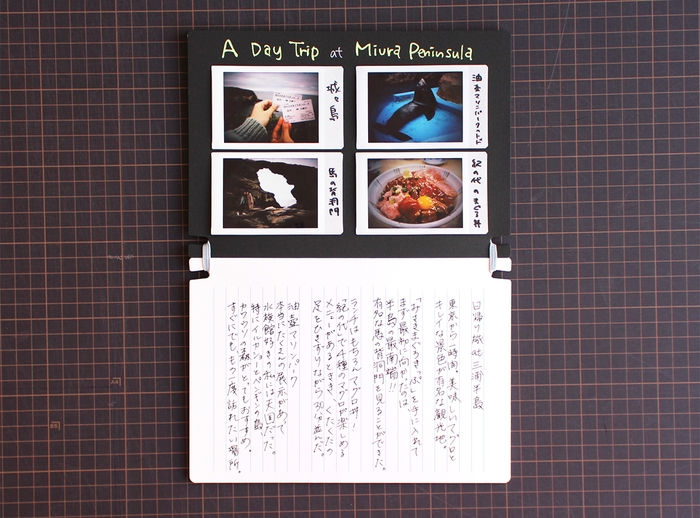 A Day Trip at Miura Peninsula
城ヶ島
油壺マリンパークのトド
馬の背洞門
紀の代のまぐろ丼
日帰り風味三浦半島
東京から一時間、美味しいマグロと
キレイな景色が有名な観光地。
「みさきまぐろきっぷ」を手に入れて
まず最初に向かったのは
半島の最南端!!
有名な馬の背洞門を見ることができた。
ランチはもちろんマグロ丼!
「紀の代」で4種のマグロが楽しめる
メニューがあるときき、くたくたの
足をひきずりながら
油壺マリンパーク
本当にたくさんの展示があって
水族館好きの私は天国だった。
特にイルカショーとペンギンの島、
カワウソの森がとってもおすすめ。
すぐにでももう一度訪れたい場所。